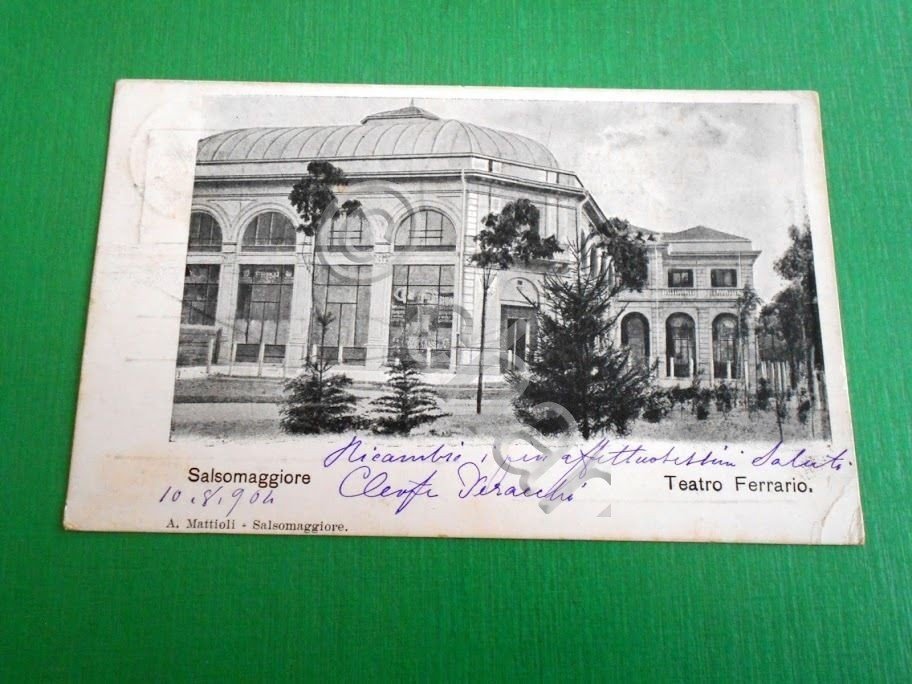 Salsomaggiore
Ricambio i più affettuosissimi Saluti.
10.8.904
Cleofe
Teatro Ferrario.
A. Mattioli - Salsomaggiore.